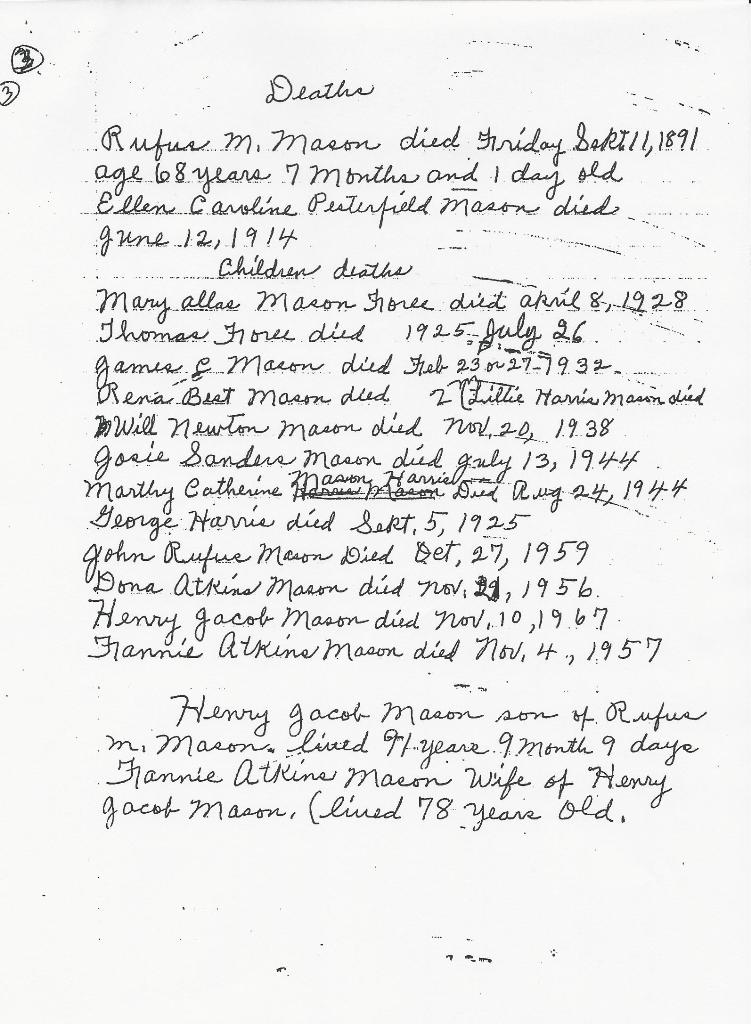 3
3
Deaths
Rufus M. Mason died Friday Sept 11, 1891
age 68 years 7 Months and 1 day old
Ellen Caroline Pesterfield Mason died
June 12, 1914
Children deaths
Mary allas Mason Foree died april 8, 1928
Thomas Foree died 1925 July 26
James C Mason died Feb 23 or 27 - 1932
Rena Best Mason died 2 (Lillie Harris Mason died
Will Newton Mason died Nov. 20, 1938
Josie Sanders Mason died July 13, 1944
Marthy Catherine Mason Harris Died Aug 24, 1944
George Harris died Sept. 5, 1925
John Rufus Mason Died Oct, 27, 1959
Dona Atkins Mason died Nov. 1956
Henry Jacob Mason died Nov. 10, 1967
Fannie Atkins Mason died Nov. 4, 1957
Henry Jacob Mason son of Rufus
M. Mason. lived 91 years 9 month 9 days
Fannie Atkins Mason Wife of Henry
Jacob Mason. (lived 78 years Old.